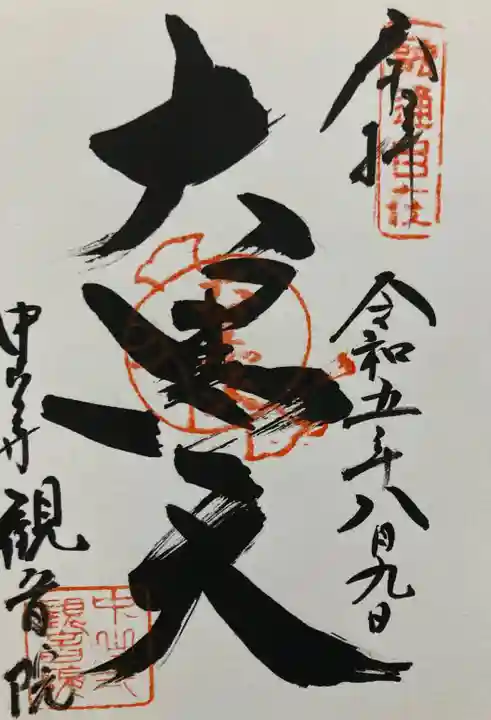 奉拝
融通自在
令和五年八月九日
大黒天
中山寺観音院
中山寺
観音院